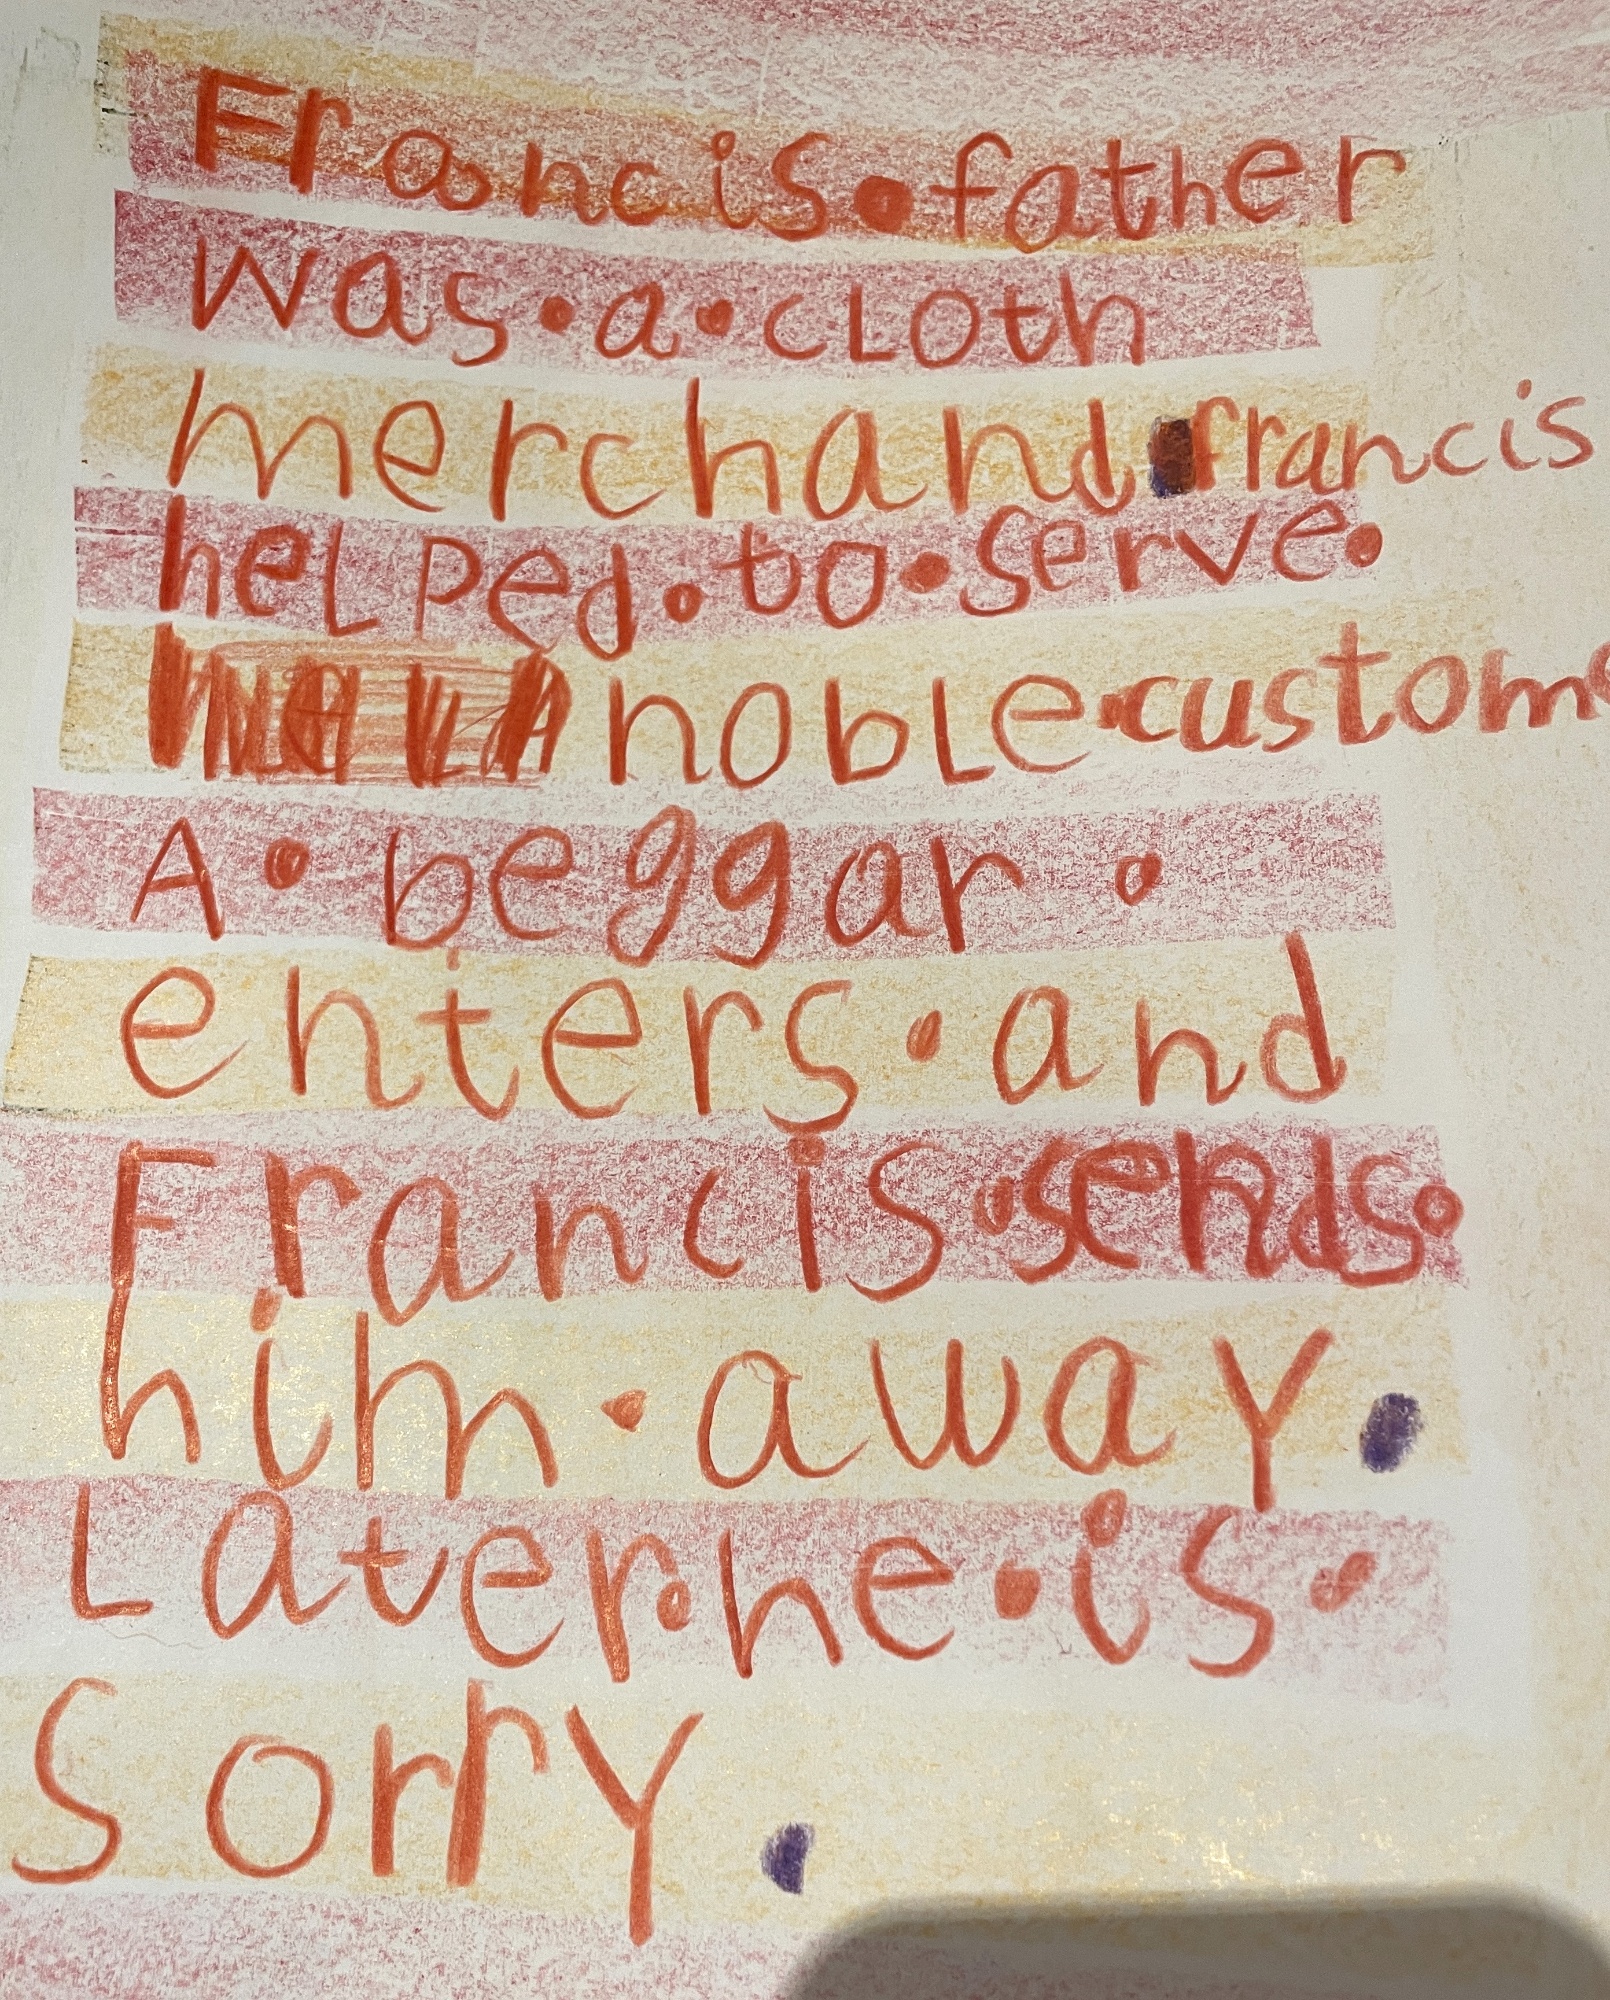 Francis•father
was•a•cLoth
merchand.francis
heLped•to•serve•
nobLe•custome
A•beggar•
enters•and
Francis•sends•
him•away.
Later•he•is•
Sorry.